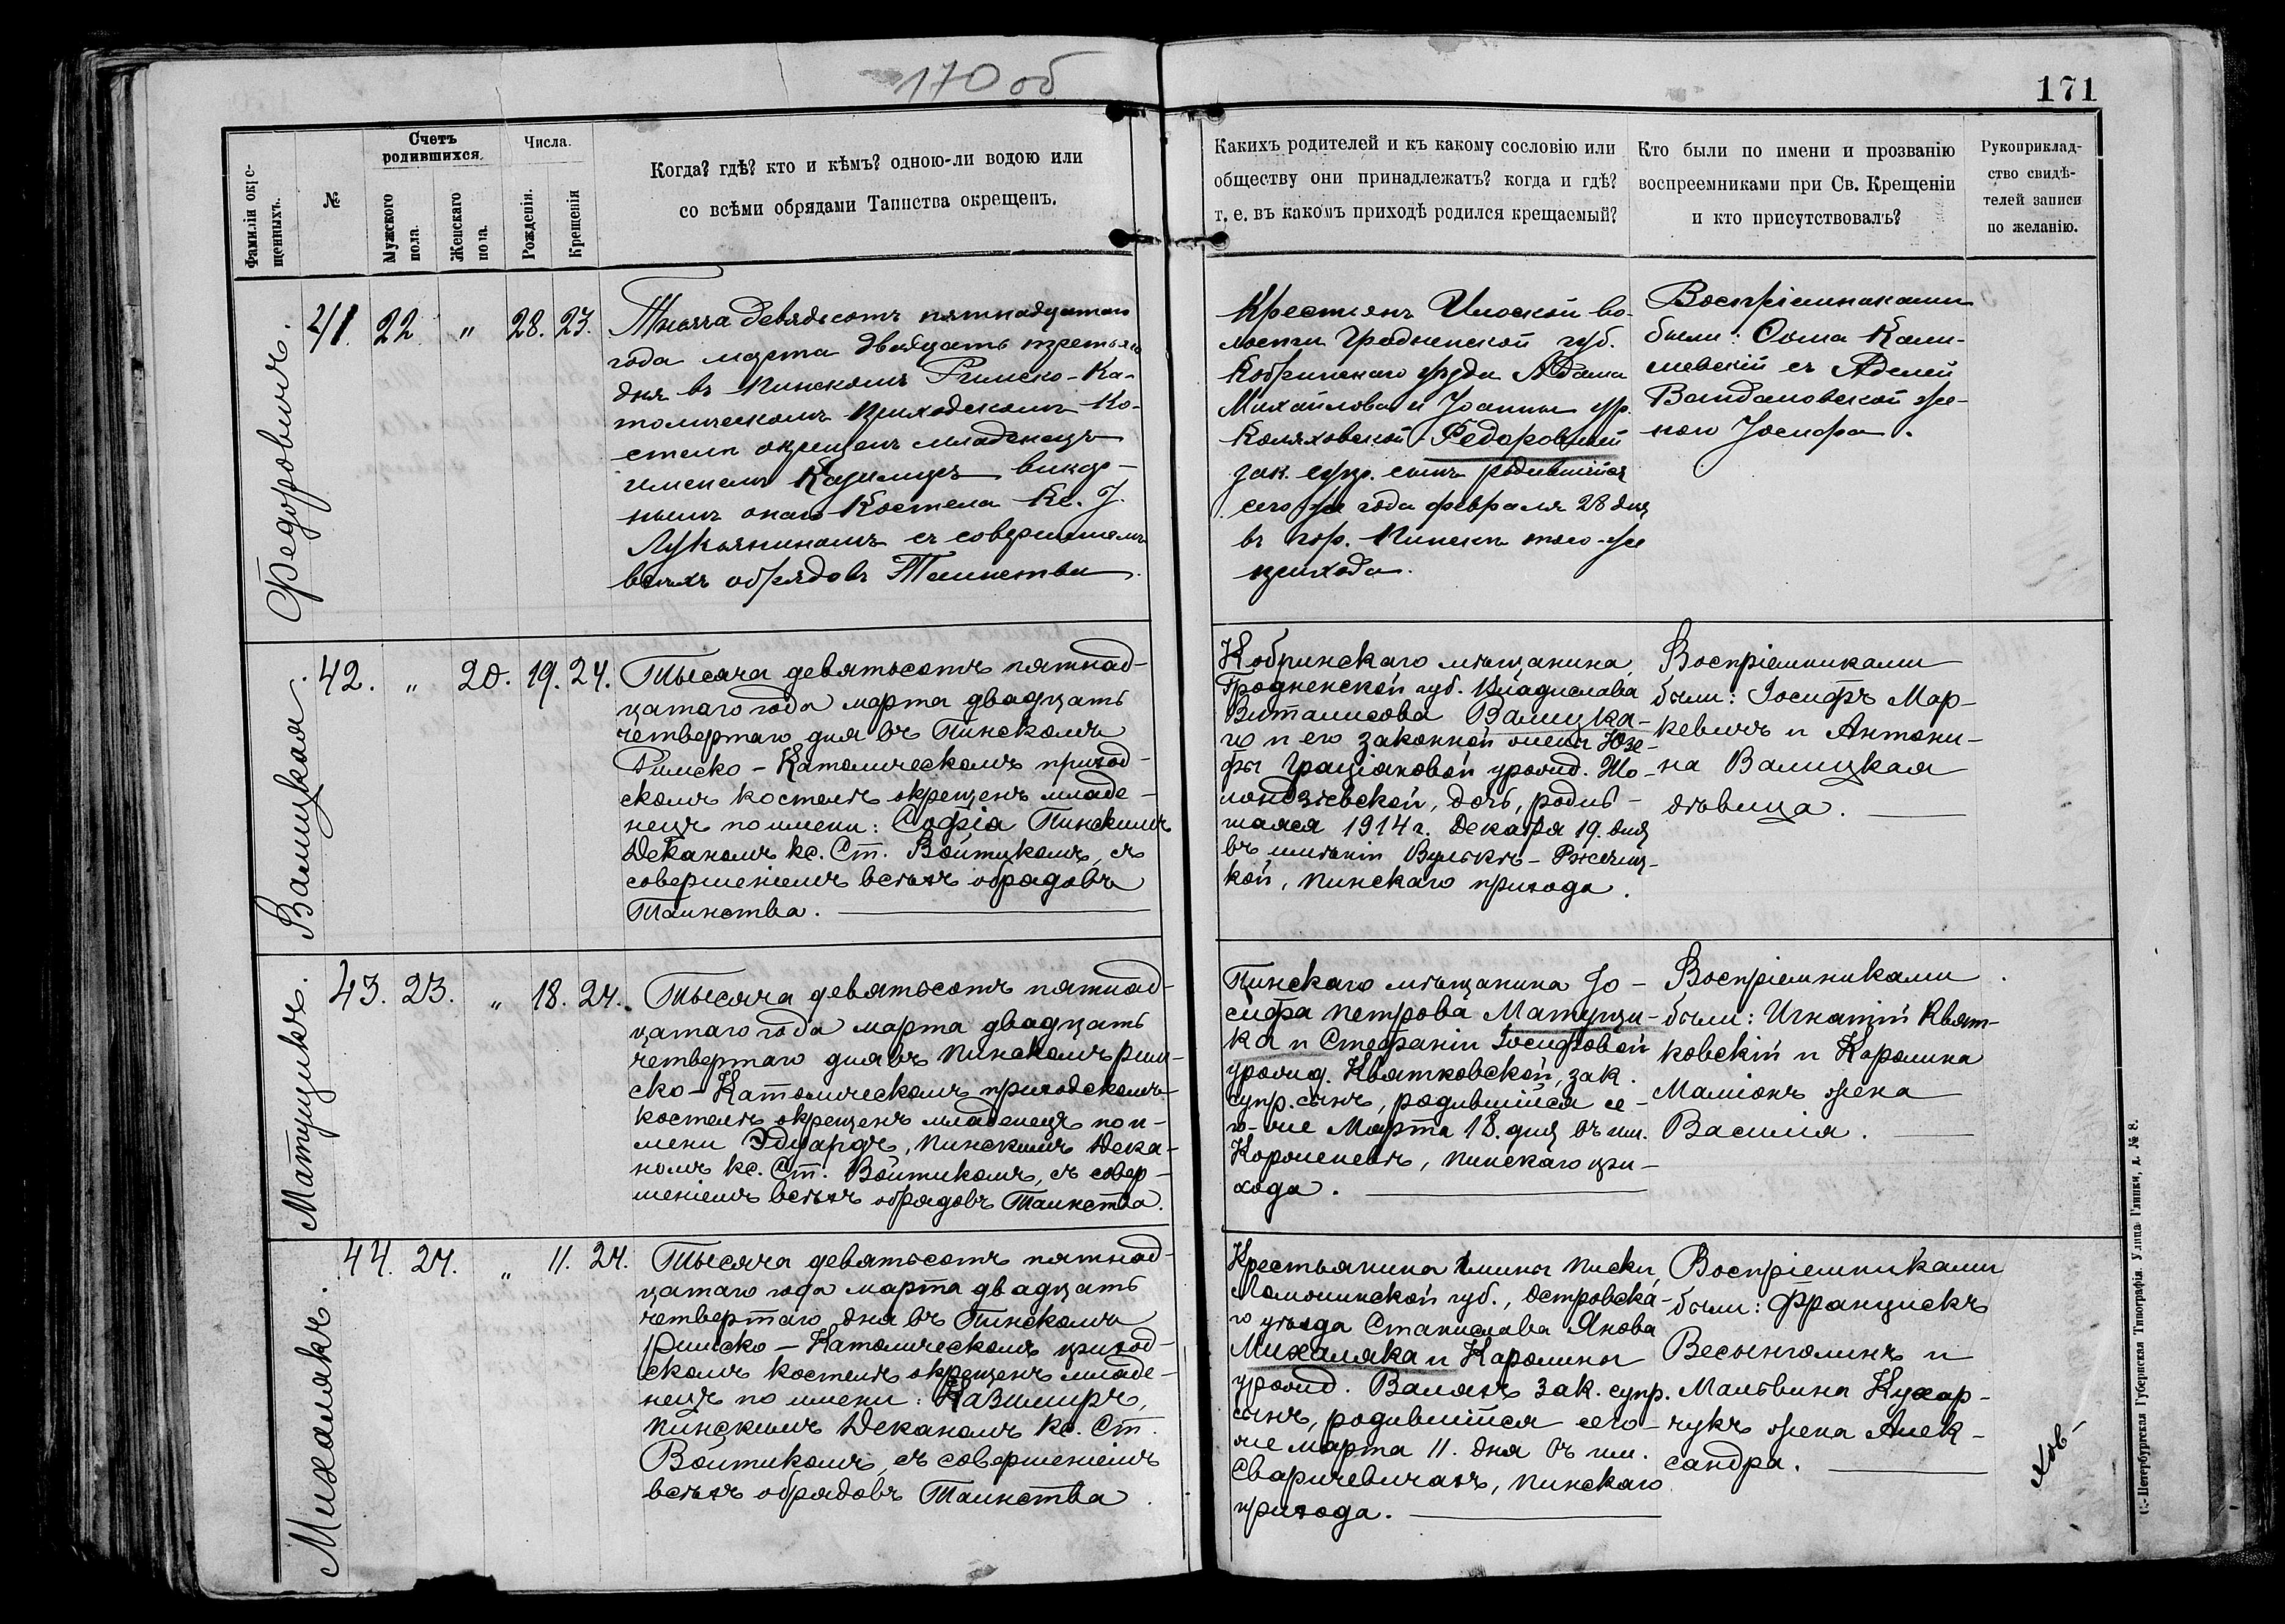 170 об
171
Фамилiи окре-
щенныхъ.
№
Счетъ
родившихся.
Мужского
пола.
Женскаго
пола.
Числа.
Рожденiя.
Крещенiя
Когда? гдѣ? кто и кѣмъ? одною-ли водою или
со всѣми обрядами Таинства окрещенъ.
Какихъ родителей и къ какому сословiю или
обществу они принадлежатъ? когда и гдѣ?
т. е. въ какомъ приходѣ родился крещаемый?
Кто были по имени и прозванiю
воспреемниками при Св. Крещенiи
и кто присутствовалъ?
Рукоприклад-
ство свидѣ-
телей записи
по желанiю.
Федоровичъ.
41. 22 " 28. 23.
Тысяча девядьсотъ пятнадцатаго
года марта двадцать третьяго
дня въ Пинскомъ Римско-Ка-
толическомъ Приходскомъ Ко-
стелѣ окрещенъ младенецъ
именемъ Казимиръ викар-
нымъ онаго Костела Кс. J.
Лукьянинамъ съ совершенiемъ
всѣхъ обрядовъ Таинства.
Крестьянъ Илоской во-
лости Гродненской губ.
Кобринскаго уѣзда Адама
Михайлова и Iоанны ур.
Коляховской Федоровичей
зак. супр. сынъ родившiйся
сего же года февраля 28 дня
въ гор. Пинскѣ того-же
прихода.
Воспрiемниками
были: Ѳома Кали-
шевскiй съ Аделей
Вайдановской же-
ною Iосифа.
Валицкая.
42. " 20. 19. 24.
Тысяча девятьсотъ пятнад-
цатаго года марта двадцать
четвертаго дня въ Пинскомъ
Римско-Католическомъ приход-
скомъ костелѣ окрещенъ младе-
нецъ по имени: Софiя Пинскимъ
Деканомъ кс. Ст. Войтикомъ, съ
совершенiемъ всѣхъ обрядовъ
Таинства.
Кобринскаго мѣщанина,
Гродненской губ. Владислава
Виталисова Валицка-
го и его законной жены Юзе-
фы Грацiановой урожд. Шо-
лондзѣевской, дочь, родив-
шаяся 1914 г. Декабря 19. дня
въ имѣнiи Вулькѣ-Ржечиц-
кой, Пинскаго прихода.
Воспрiемниками
были: Iосифъ Мар-
кевичъ и Антони-
на Валицкая
дѣвица.
Матуцикъ.
43. 23. " 18. 24.
Тысяча девятьсотъ пятнад-
цатаго года марта двадцать
четвертаго дня въ Пинскомъ Рим-
ско-Католическомъ приходскомъ
костелѣ окрещенъ младенецъ по и-
мени Эдуардъ, Пинскимъ Дека-
номъ кс. Ст. Войтикомъ, съ совер-
шенiемъ всѣхъ обрядовъ Таинства.
Пинскаго мѣщанина Iо-
сифа Петрова Матуци-
ка и Стефанiи Iосифовой
урожд. Квятковской, зак.
супр. сынъ, родившiйся се-
го-же Марта 18. дня въ им.
Короленевѣ, Пинскаго при-
хода.
Воспрiемниками
были: Игнатiй Квят-
ковскiй и Каролина
Малiонъ жена
Василiя.
Михалякъ.
44. 24. " 11. 24.
Тысяча девятьсотъ пятнад-
цатаго года марта двадцать
четвертаго дня въ Пинскомъ
Римско-Католическомъ приход-
скомъ костелѣ окрещенъ младе-
нецъ по имени: Казимиръ,
Пинскимъ Деканомъ Кс. Ст.
Войтикомъ, съ совершенiемъ
всѣхъ обрядовъ Таинства.
Крестьянина гмины Писки,
Ломжинской губ., Островска-
го уѣзда Станислава Янова
Михаляка и Каролины
урожд. Валянъ зак. супр.
сынъ, родившiйся сего-
же марта 11. дня въ им.
Сваричевичахъ, Пинскаго
прихода.
Воспрiемниками
были: Францискъ
Весынголинъ и
Мальвина Кухар-
чукъ жена Алек-
сандра.
С.-Петербургская Губернская Типографiя. Улица Глинки, д. № 8.